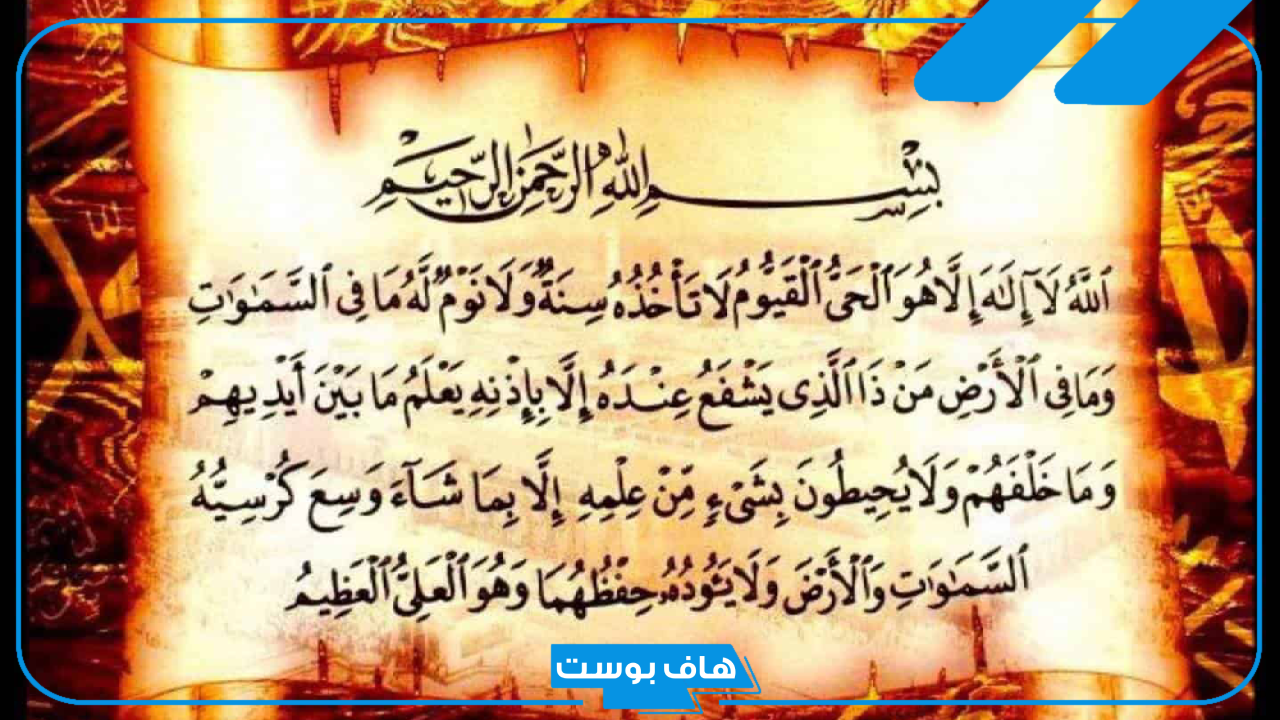 بِسْمِ اللَّهِ الرَّحْمَٰنِ الرَّحِيمِ
ٱللَّهُ لَآ إِلَٰهَ إِلَّا هُوَ ٱلْحَىُّ ٱلْقَيُّومُ لَا تَأْخُذُهُ سِنَةٌ وَلَا نَوْمٌ لَّهُ مَا فِى ٱلسَّمَٰوَٰتِ
وَمَا فِى ٱلْأَرْضِ مَنْ ذَا ٱلَّذِى يَشْفَعُ عِنْدَهُ إِلَّا بِإِذْنِهِ يَعْلَمُ مَا بَيْنَ أَيْدِيهِمْ
وَمَا خَلْفَهُمْ وَلَا يُحِيطُونَ بِشَىْءٍ مِّنْ عِلْمِهِ إِلَّا بِمَا شَآءَ وَسِعَ كُرْسِيُّهُ
ٱلسَّمَٰوَٰتِ وَٱلْأَرْضَ وَلَا يَـُٔودُهُۥ حِفْظُهُمَا وَهُوَ ٱلْعَلِىُّ ٱلْعَظِيمُ
هاف بوست